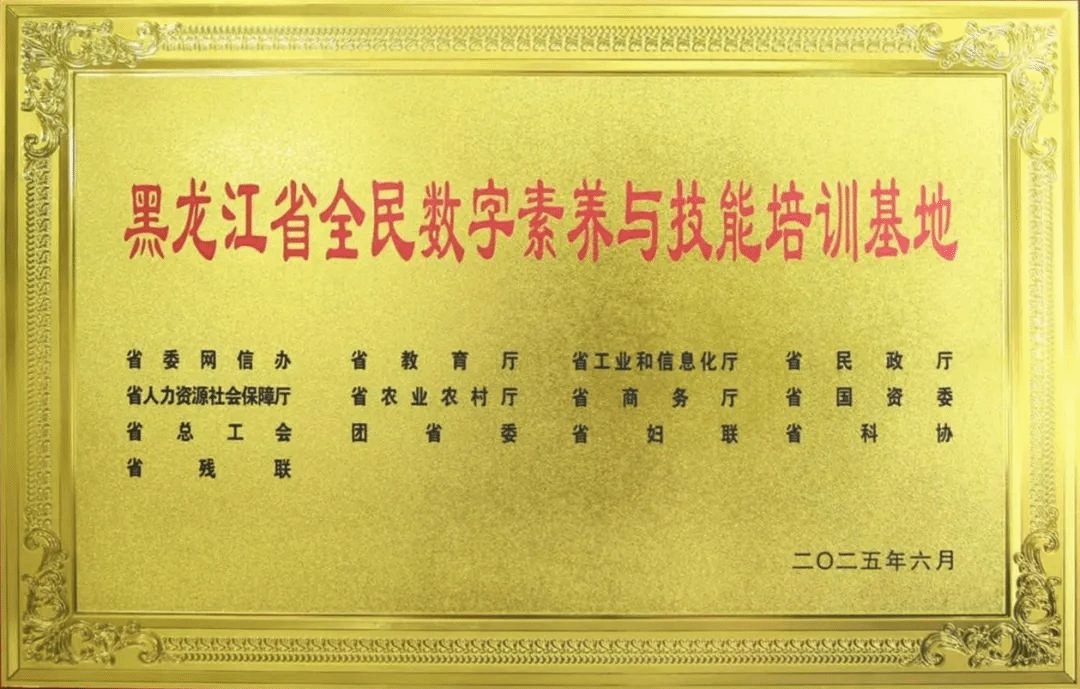 黑龙江省全民数字素养与技能培训基地
省委网信办 省教育厅 省工业和信息化厅 省民政厅
省人力资源社会保障厅 省农业农村厅 省商务厅 省国资委
省总工会 团省委 省妇联 省科协
省残联
二〇二五年六月